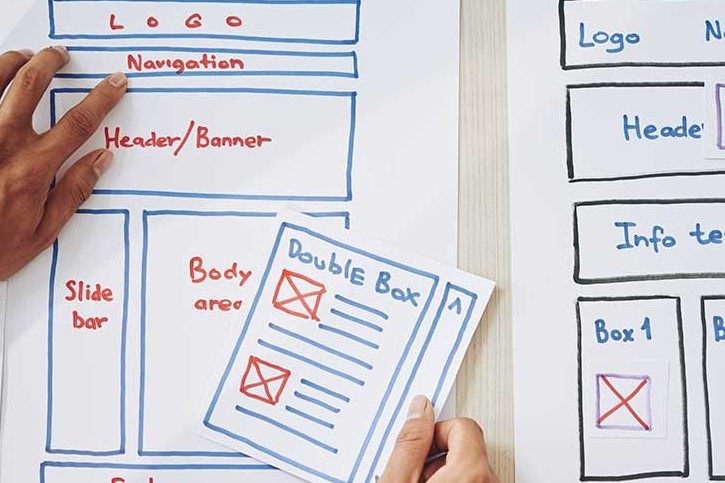 LOGO
Navigation
Header/Banner
Slide
bar
Body
area
Double Box
Logo
Info
Box 1